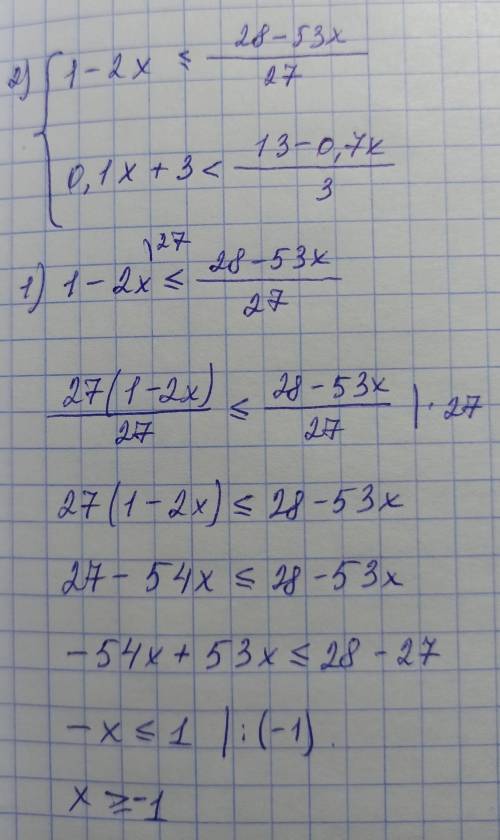 2) { 1 - 2x ≤ (28 - 53x)/27
0,1x + 3 < (13 - 0,7x)/3
1) 1 - 2x |27 ≤ (28 - 53x)/27
27(1 - 2x)/27 ≤ (28 - 53x)/27 | · 27
27(1 - 2x) ≤ 28 - 53x
27 - 54x ≤ 28 - 53x
-54x + 53x ≤ 28 - 27
-x ≤ 1 | : (-1).
x ≥ -1